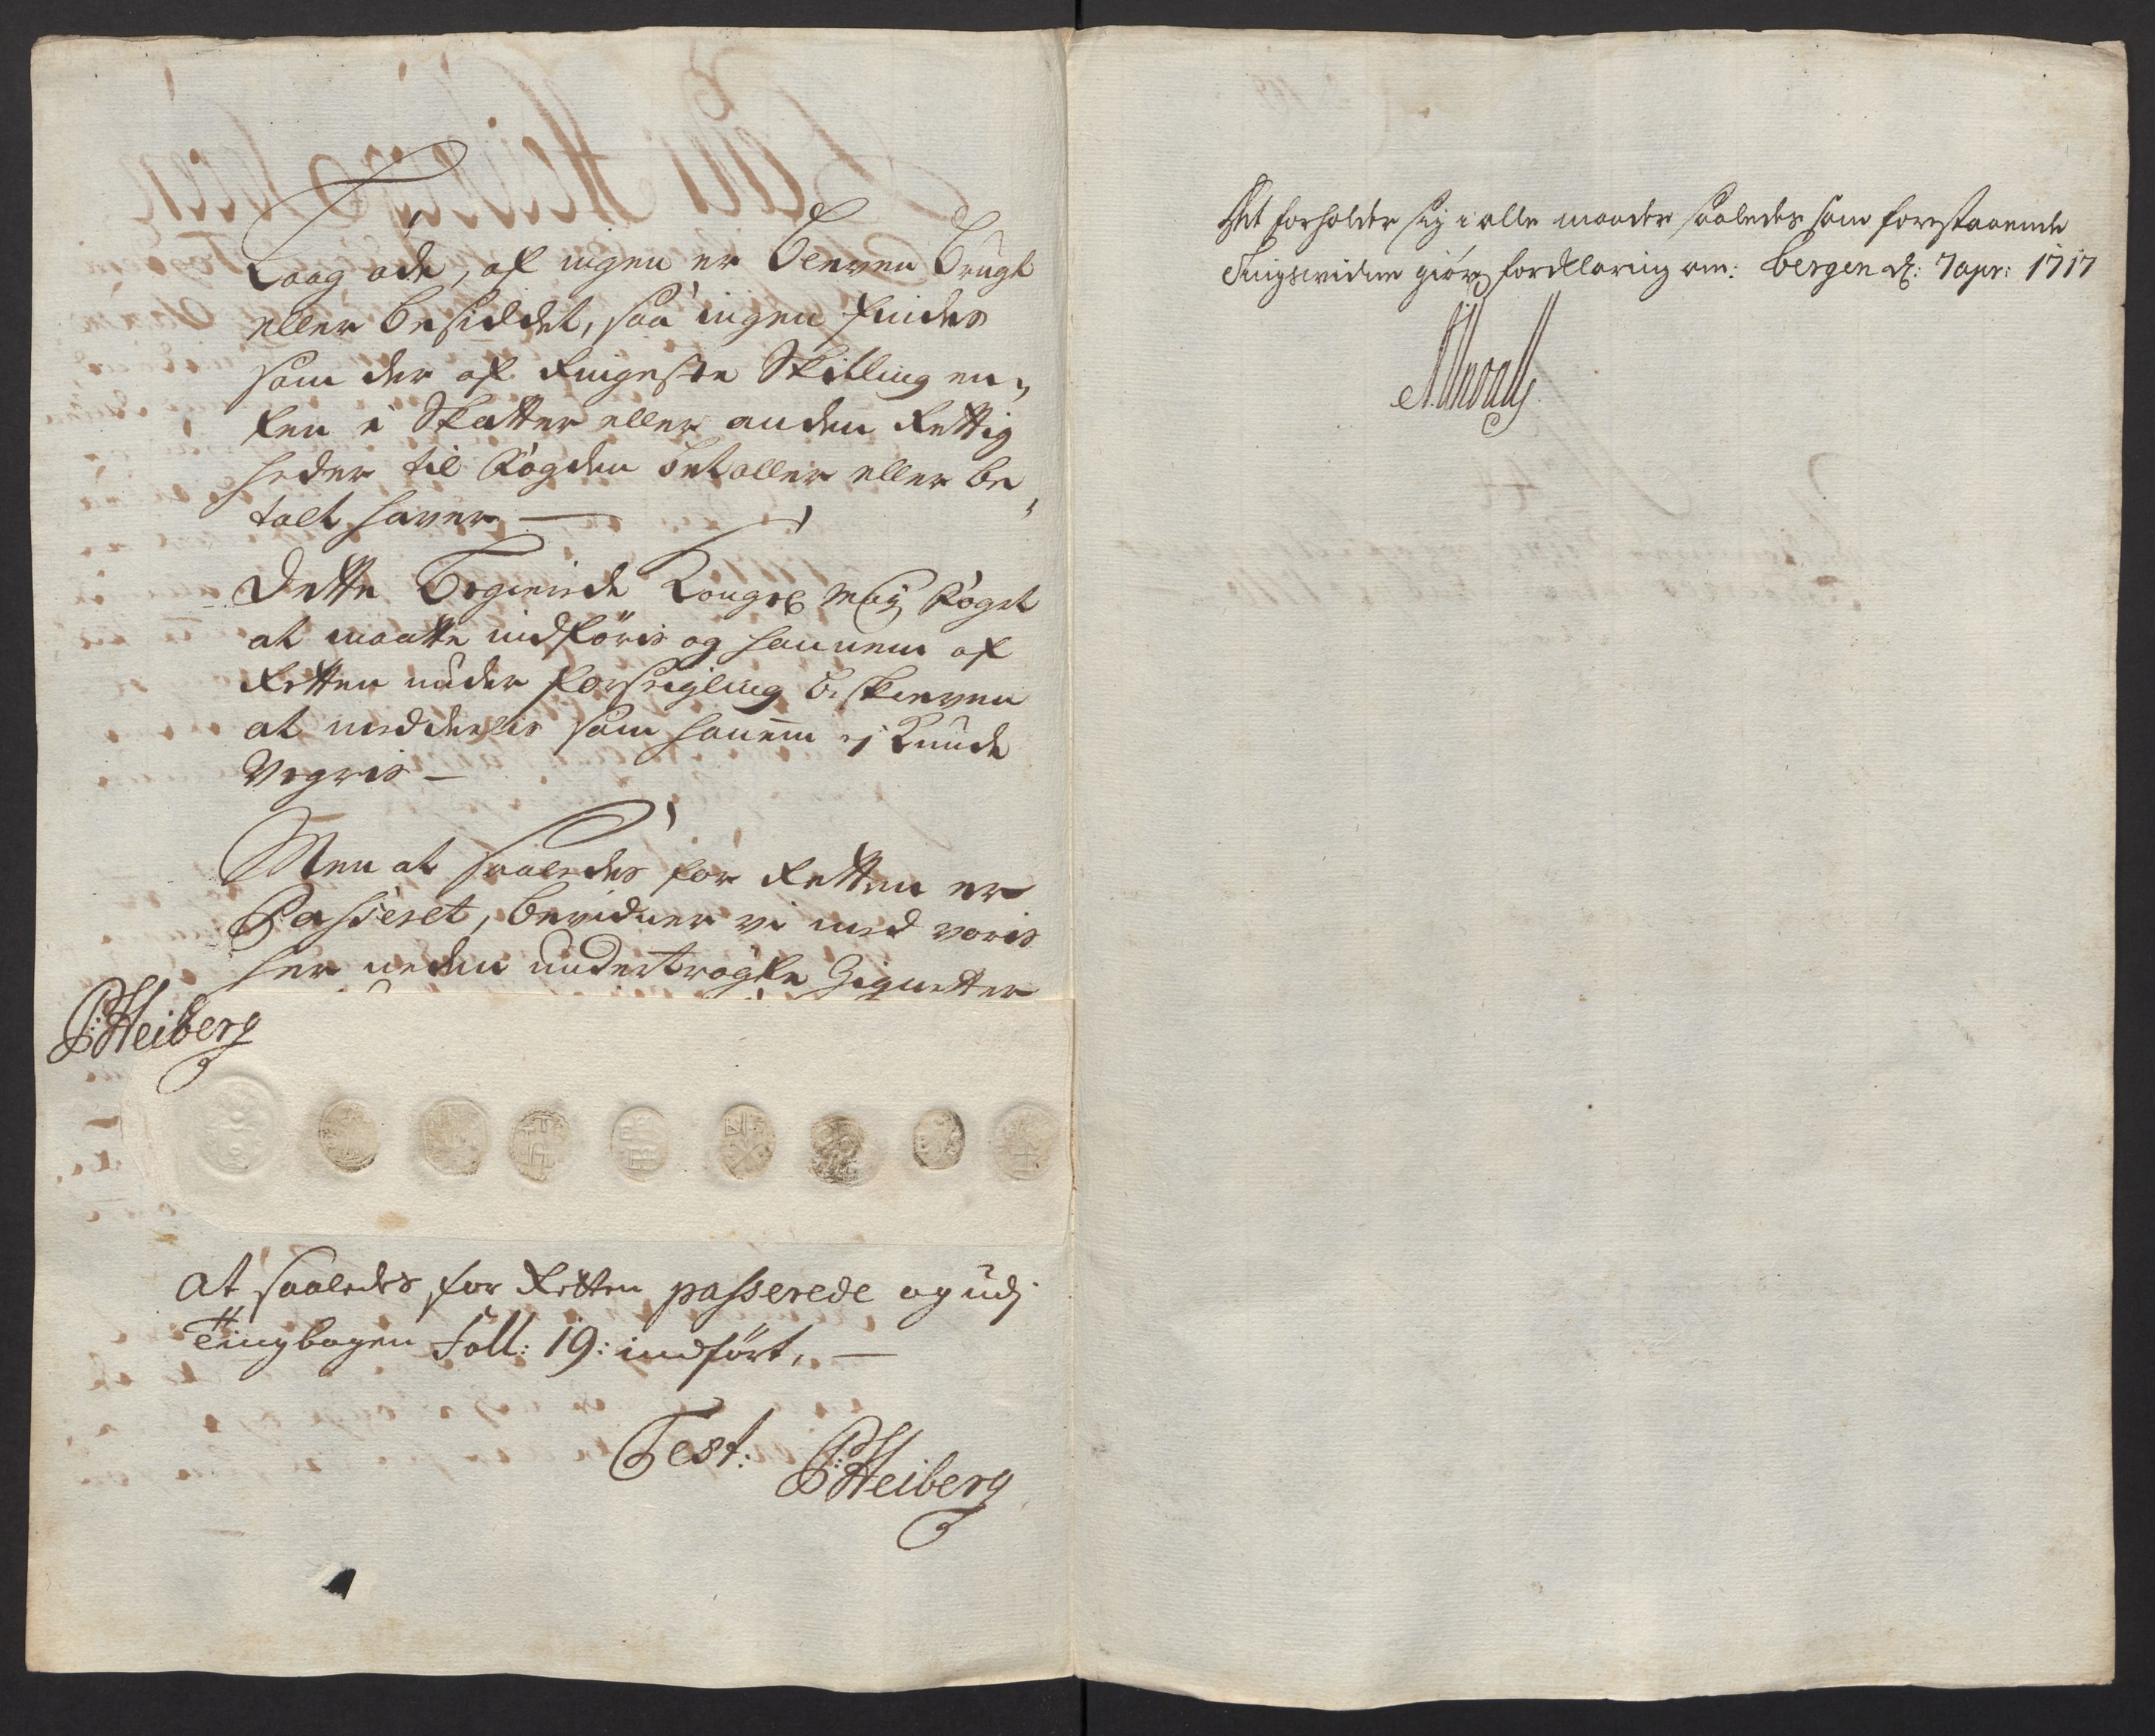 Laag øde, af ingen er bleven brugt
eller besiddet, saa ingen findes
som der af ringeste Skilling en,,
ten i Skatter eller anden Rettig
heder til Fogden betaller eller be
talt haver —
Dette begierede Kongel May Foget
at maatte indføris og hannem af
Retten under forseigling beskreven
at meddeelis som hanem ej kunde
Vegris —
Men at saaledes for Retten er
Passeret, bevidner vi med voris
her neden undertrøgte Zignetter
P: Heiberg
At saaledes for Retten passerede og udj
Tingbogen Foll: 19: indført, —
Test: P: Heiberg
Det forholder sig i alle maader saaledes som forestaaende
Tingswidne giør forklaring om: Bergen d: 7 apr: 1717